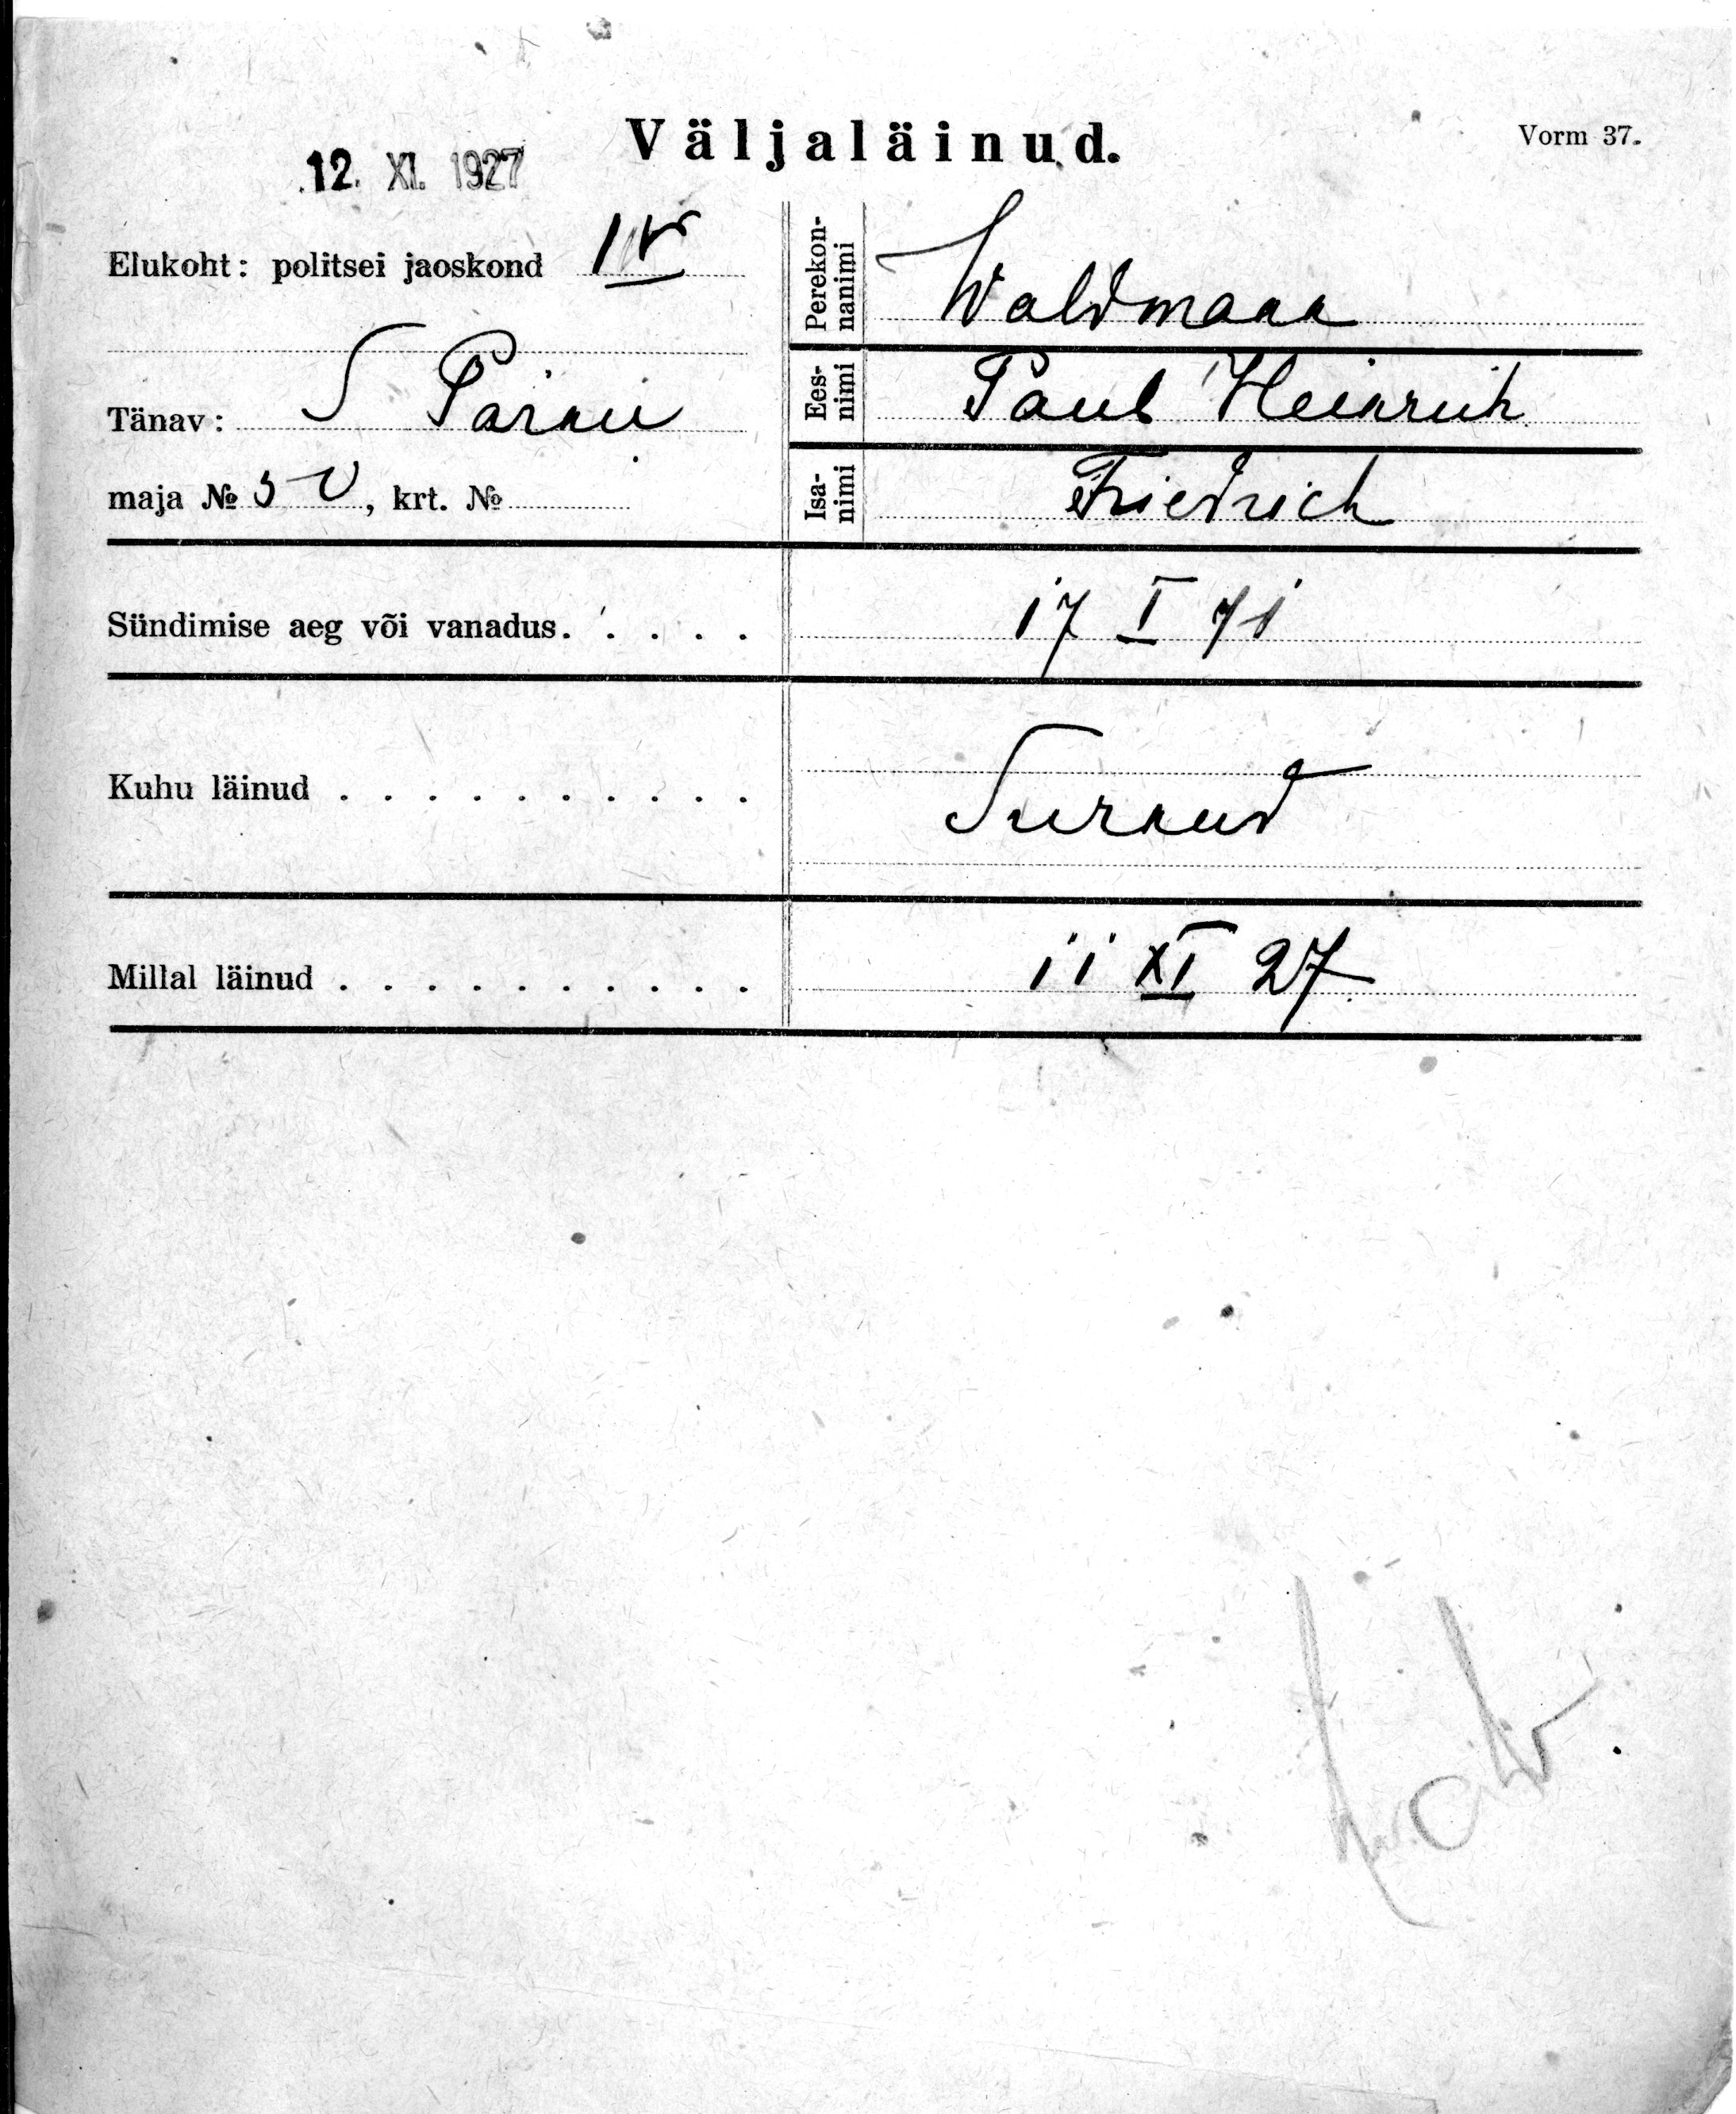 Väljaläinud.
Vorm 37.
12. XI. 1927
Elukoht: politsei jaoskond IV
Tänav: S Pärnu
maja № 50, krt. №
Perekon-
nanimi
Waldmann
Ees-
nimi
Paul Heinrich
Isa-
nimi
Friedrich
Sündimise aeg või vanadus. . . . . 17 I 71
Kuhu läinud . . . . . . . . . . Surnud
Millal läinud . . . . . . . . . . 11 XI 27